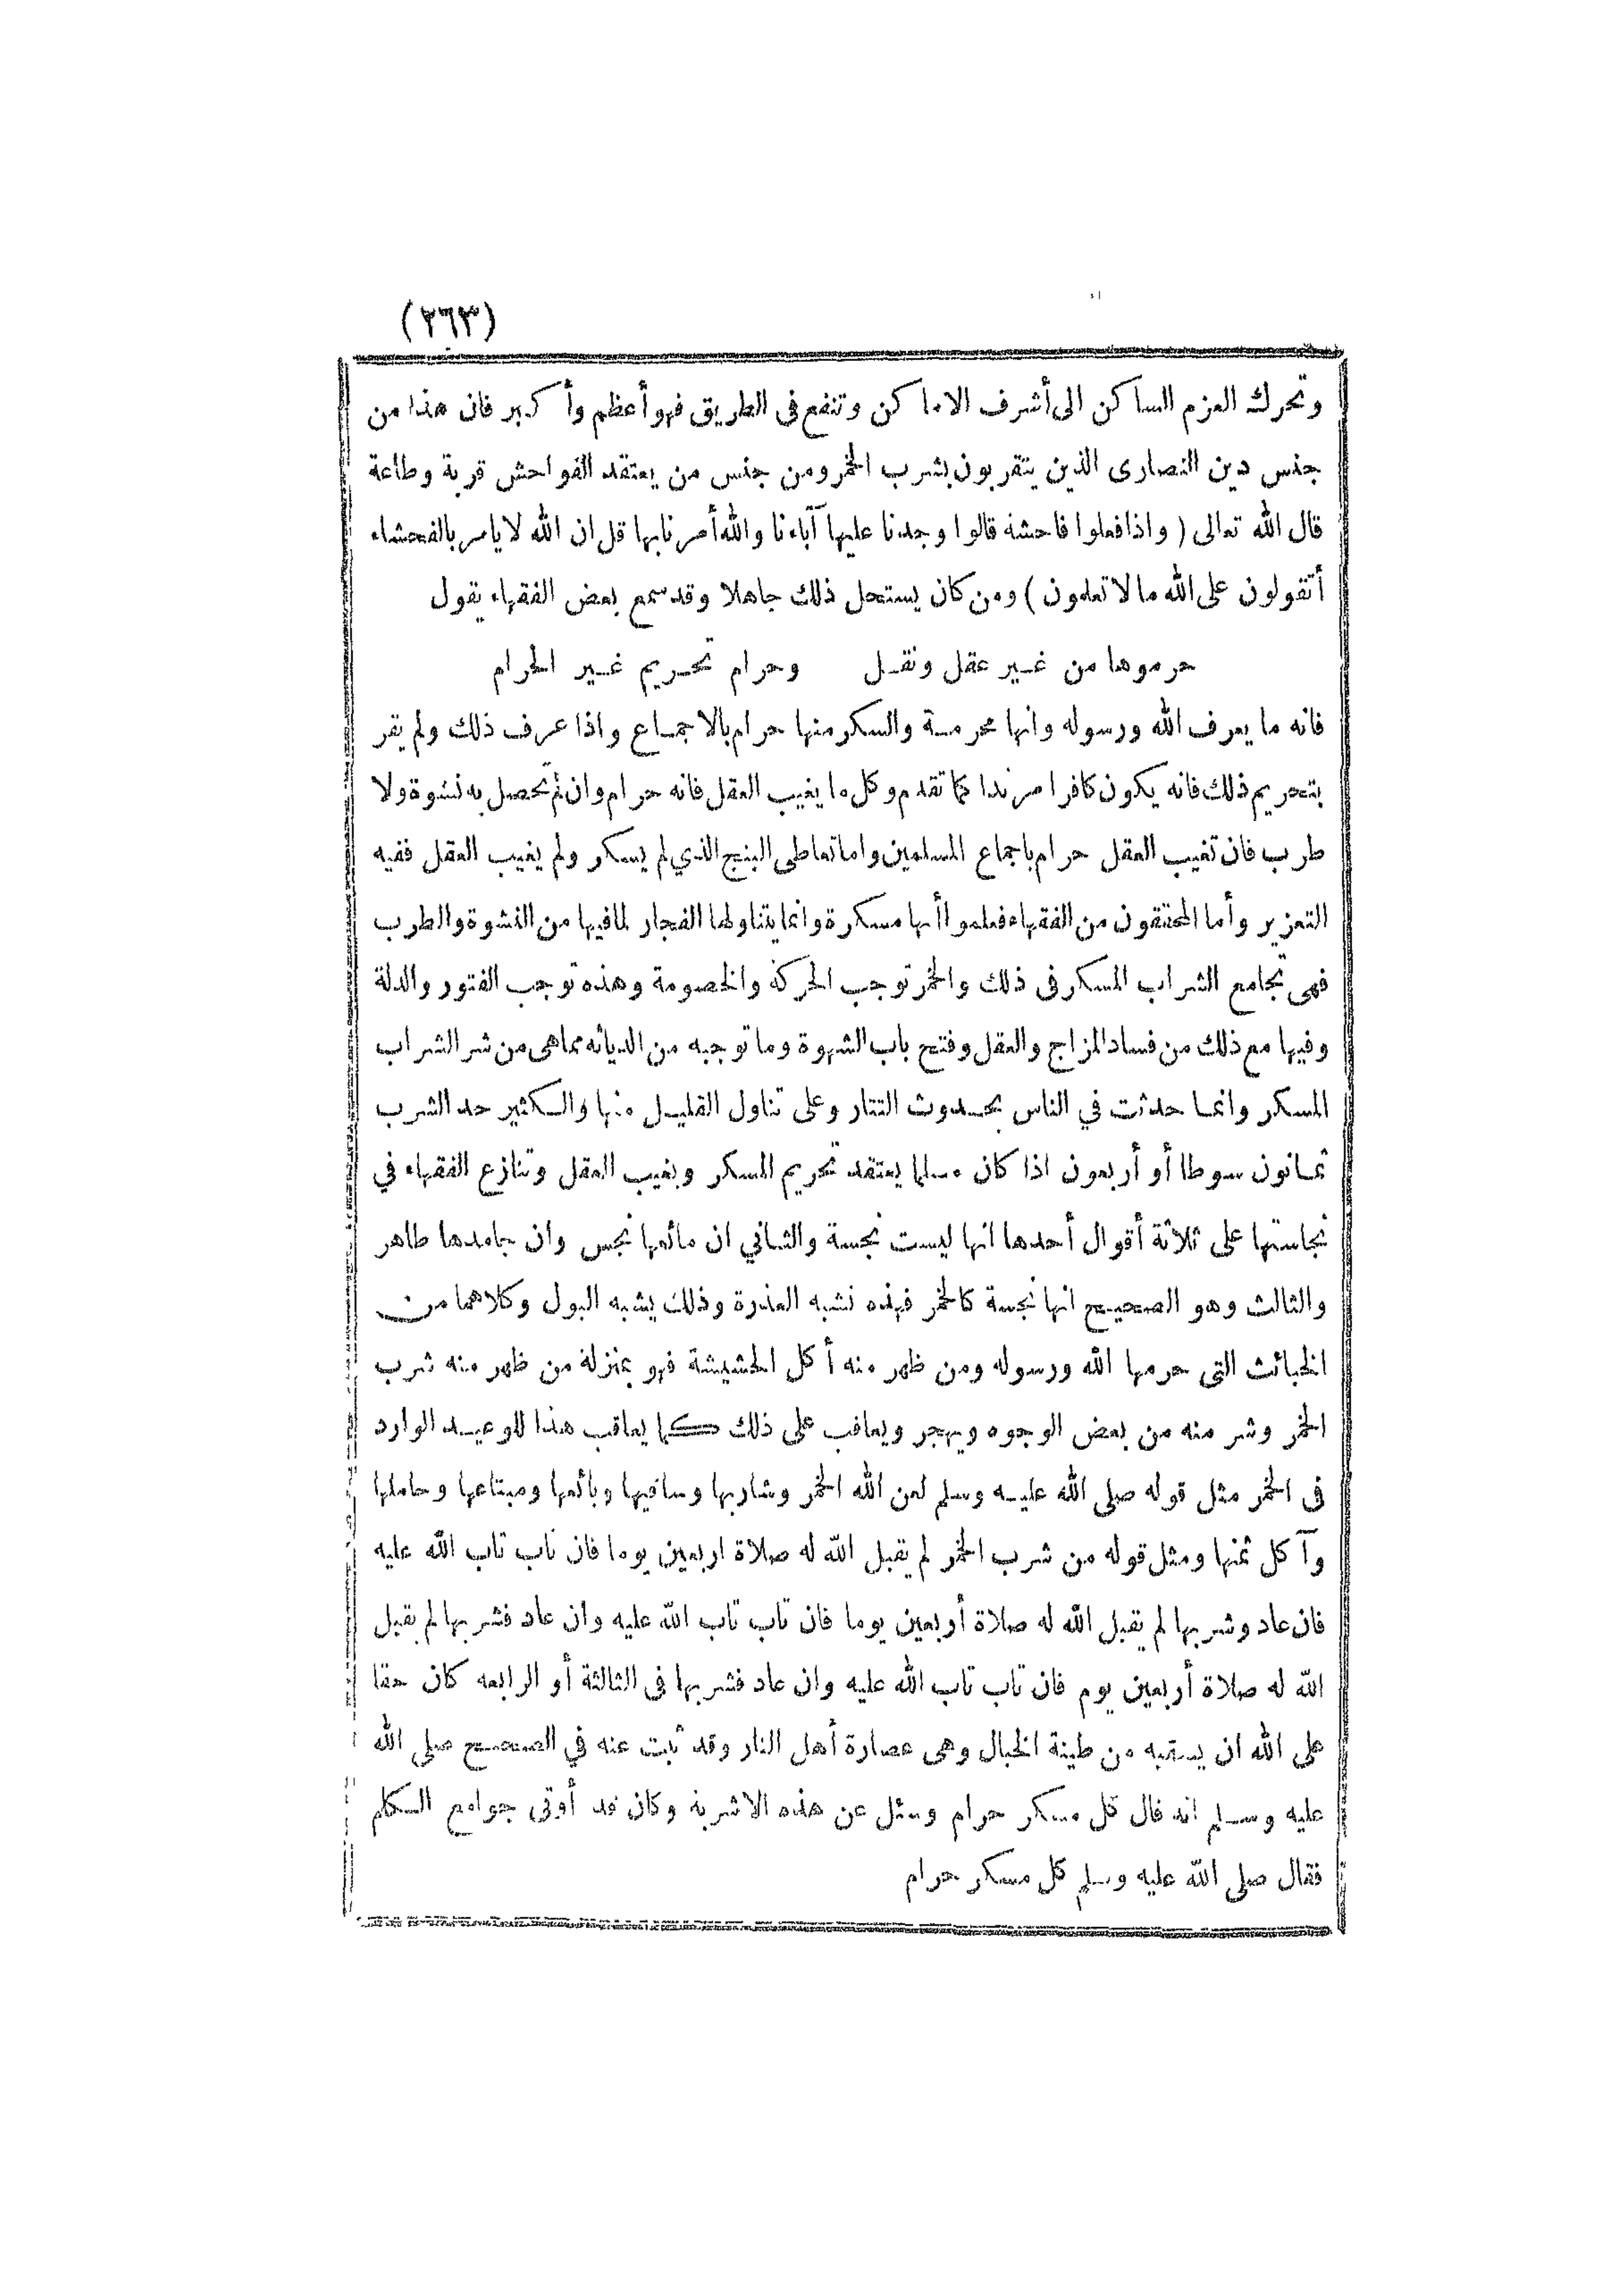 (٢٦٣)
وتحرك العزم الساكن الى أشرف الاماكن وتنفع فى الطريق فهو أعظم وأكبر فان هذا من
جنس دين النصارى الذين يتقربون بشرب الخمر ومن جنس من يعتقد الفواحش قربة وطاعة
قال الله تعالى ( واذا فعلوا فاحشة قالوا وجدنا عليها آباءنا والله أمرنا بها قل ان الله لا يامر بالفحشاء
أتقولون على الله ما لا تعلمون ) ومن كان يستحل ذلك جاهلا وقد سمع بعض الفقهاء يقول
حرموها من غير عقل ونقل وحرام تحريم غير الحرام
فانه ما يعرف الله ورسوله وانها محرمة والسكر منها حرام بالاجماع واذا عرف ذلك ولم يقر
بتحريم ذلك فانه يكون كافرا مرتدا كما تقدم وكل ما يغيب العقل فانه حرام وان لم تحصل به نشوة ولا
طرب فان تغيب العقل حرام باجماع المسلمين واما تعاطى البنج الذي لم يسكر ولم يغيب العقل ففيه
التعزير وأما المحققون من الفقهاء فعلموا أنها مسكرة وانما يتناولها الفجار لما فيها من النشوة والطرب
فهى تجامع الشراب المسكر فى ذلك والخمر توجب الحركة والخصومة وهذه توجب الفتور والدلة
وفيها مع ذلك من فساد المزاج والعقل وفتح باب الشهوة وما توجبه من الدياثه مما هى من شر الشراب
المسكر وانما حدثت في الناس بحدوث التتار وعلى تناول القليل منها والكثير حد الشرب
ثمانون سوطا أو أربعون اذا كان مسلما يعتقد تحريم المسكر وبغيب العقل وتنازع الفقهاء في
نجاستها على ثلاثة أقوال أحدها انها ليست نجسة والثاني ان مائعها نجس وان جامدها طاهر
والثالث وهو الصحيح انها نجسة كالخمر فهذه تشبه العذرة وذلك يشبه البول وكلاهما من
الخبائث التى حرمها الله ورسوله ومن ظهر منه أكل الحشيشة فهو بمنزلة من ظهر منه شرب
الخمر وشر منه من بعض الوجوه ويهجر ويعاقب على ذلك كما يعاقب هذا للوعيد الوارد
فى الخمر مثل قوله صلى الله عليه وسلم لعن الله الخمر وشاربها وساقيها وبائعها ومبتاعها وحاملها
وآكل ثمنها ومثل قوله من شرب الخمر لم يقبل الله له صلاة اربعين يوما فان تاب تاب الله عليه
فان عاد وشربها لم يقبل الله له صلاة أربعين يوما فان تاب تاب الله عليه وان عاد فشربها لم يقبل
الله له صلاة أربعين يوم فان تاب تاب الله عليه وان عاد فشربها فى الثالثة أو الرابعه كان حقا
على الله ان يسقيه من طينة الخبال وهى عصارة أهل النار وقد ثبت عنه في الصحيح صلى الله
عليه وسلم انه قال كل مسكر حرام وسئل عن هذه الاشربة وكان قد أوتى جوامع الكلم
فقال صلى الله عليه وسلم كل مسكر حرام